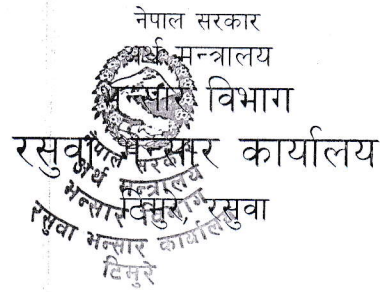 नेपाल सरकार
अर्थ मन्त्रालय
भन्सार विभाग
रसुवा भन्सार कार्यालय
टिमुरे, रसुवा
नेपाल सरकार
अर्थ मन्त्रालय
भन्सार विभाग
रसुवा भन्सार कार्यालय
टिमुरे